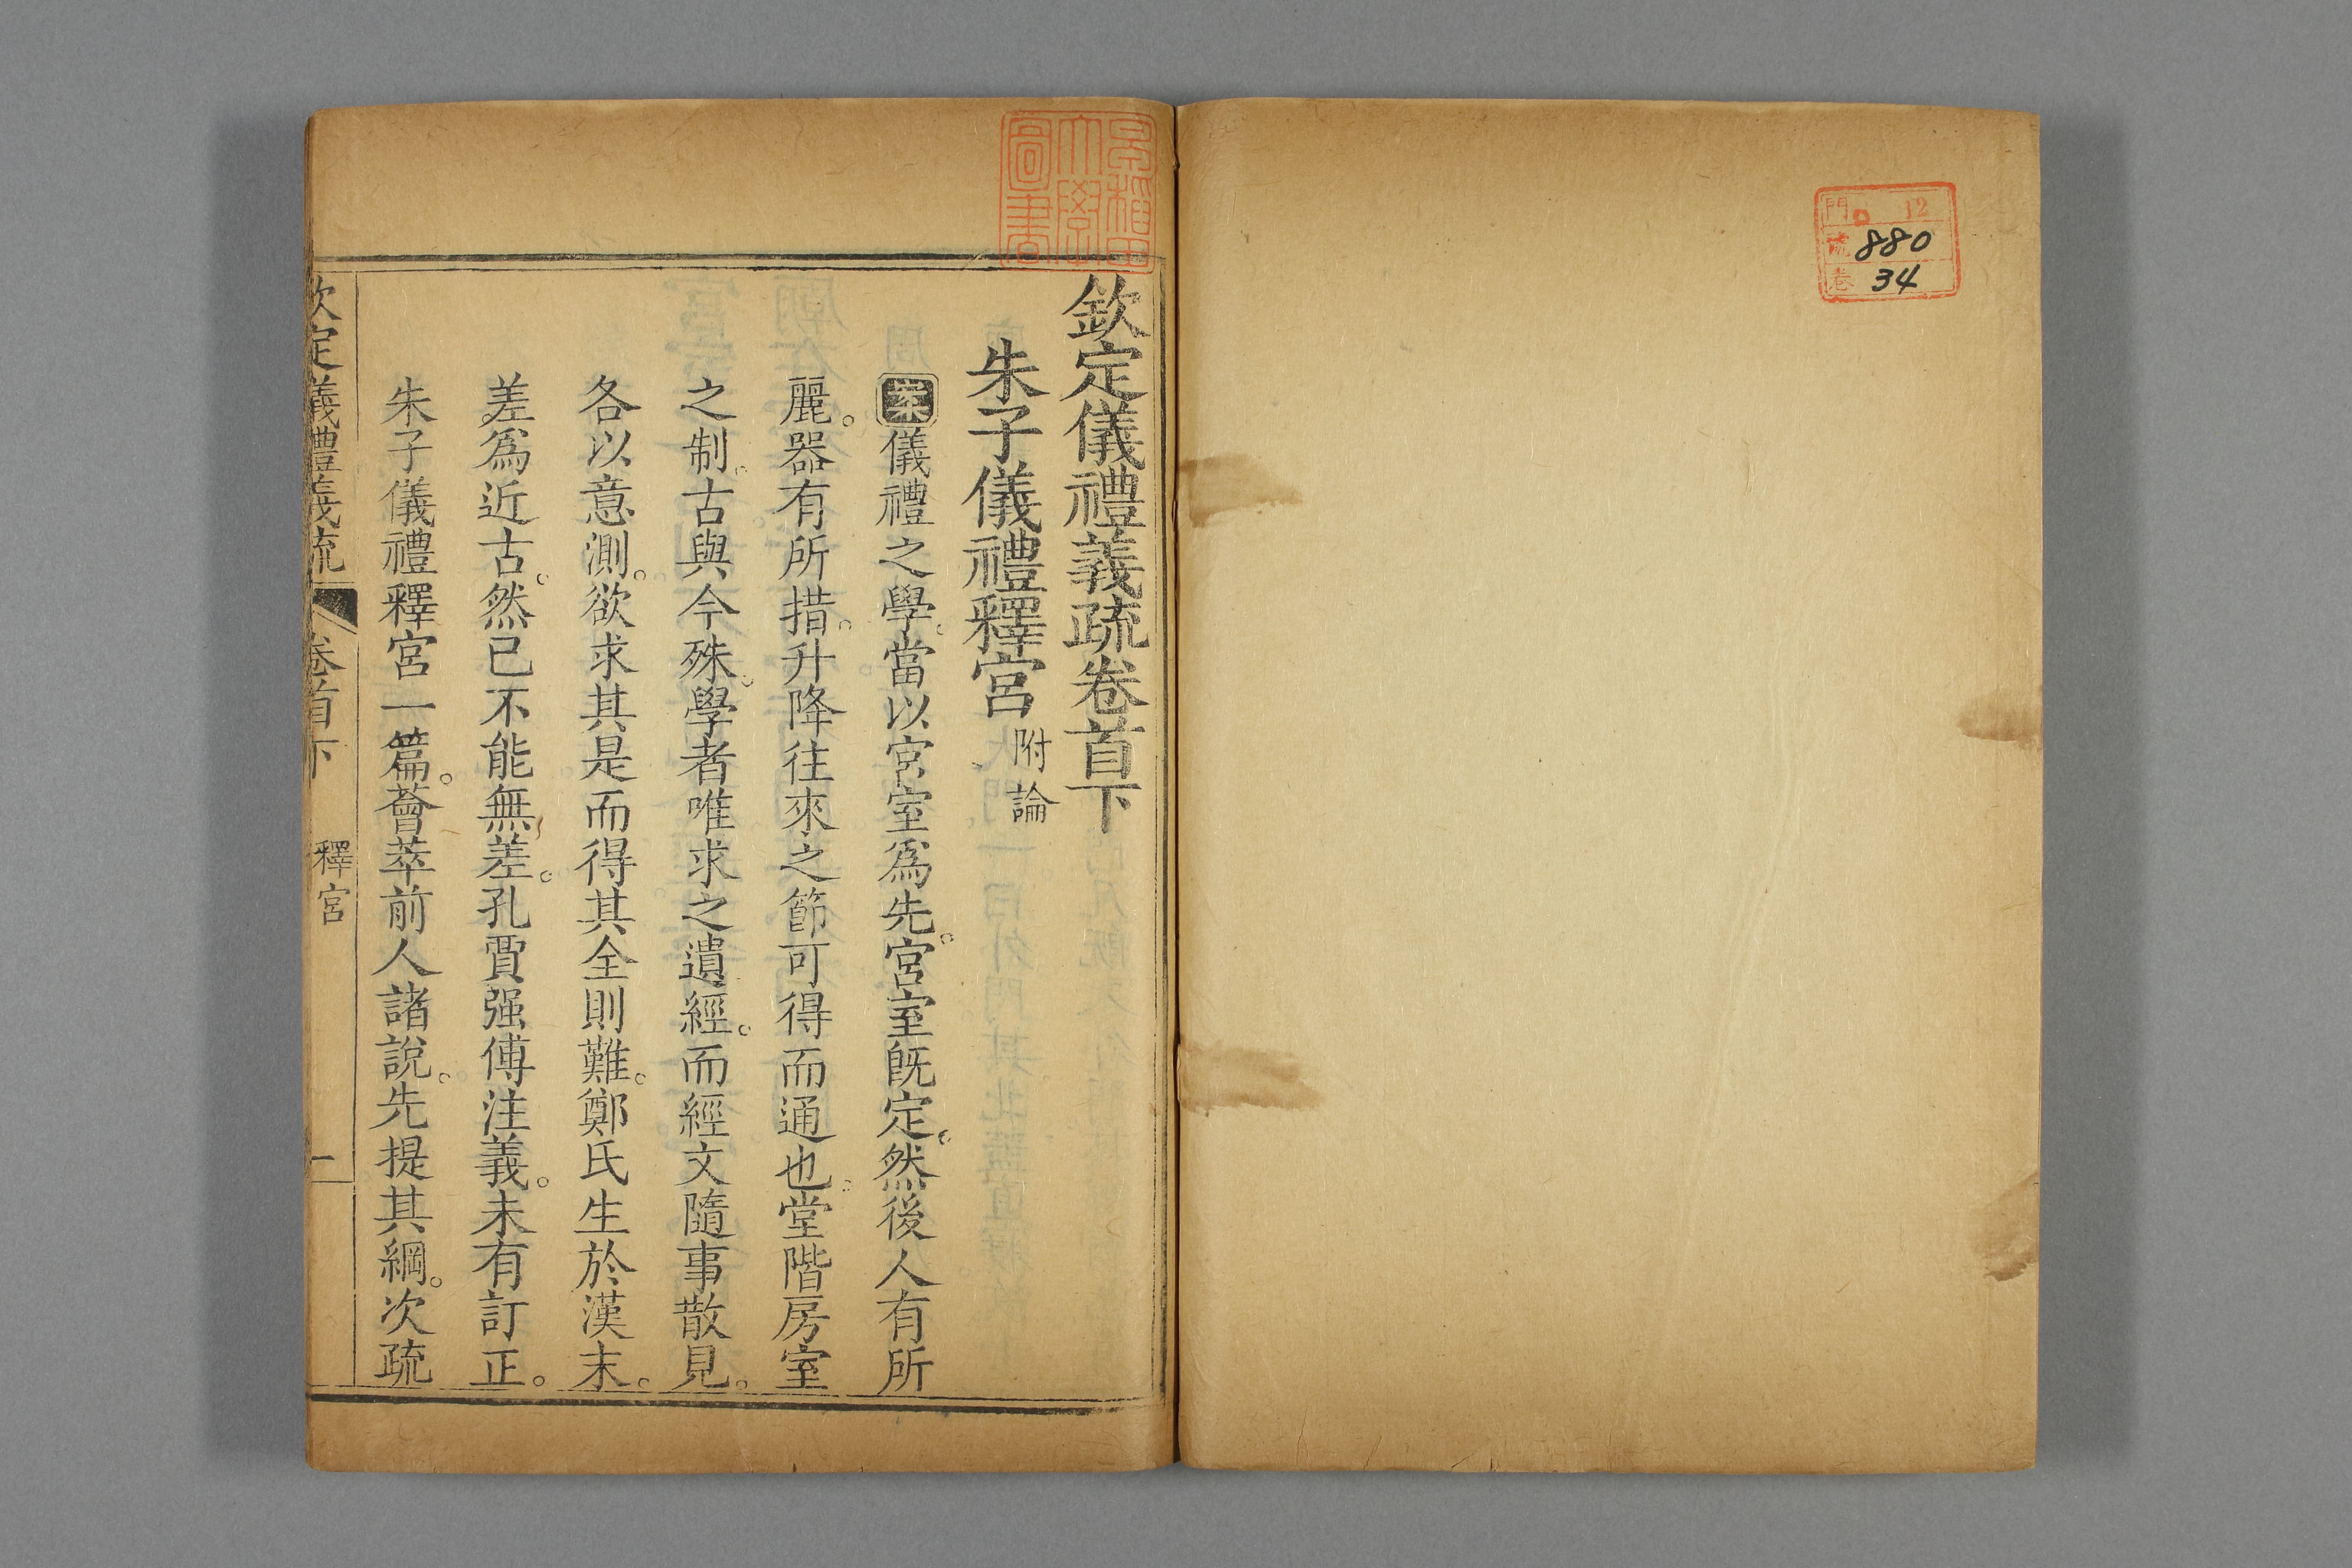 門 12
號 880
卷 34
早稻田大學圖書
欽定儀禮義疏卷首下
朱子儀禮釋宮附論
案儀禮之學。當以宮室爲先。宮室既定。然後人有所
麗。器有所措。升降往來之節可得而通也。堂階房室
之制。古與今殊。學者唯求之遺經。而經文隨事散見。
各以意測。欲求其是而得其全則難。鄭氏生於漢末。
差爲近古。然已不能無差。孔賈强傅注義。未有訂正。
朱子儀禮釋宮一篇。薈萃前人諸說。先提其綱。次疏
欽定儀禮義疏 卷首下 釋宮 一